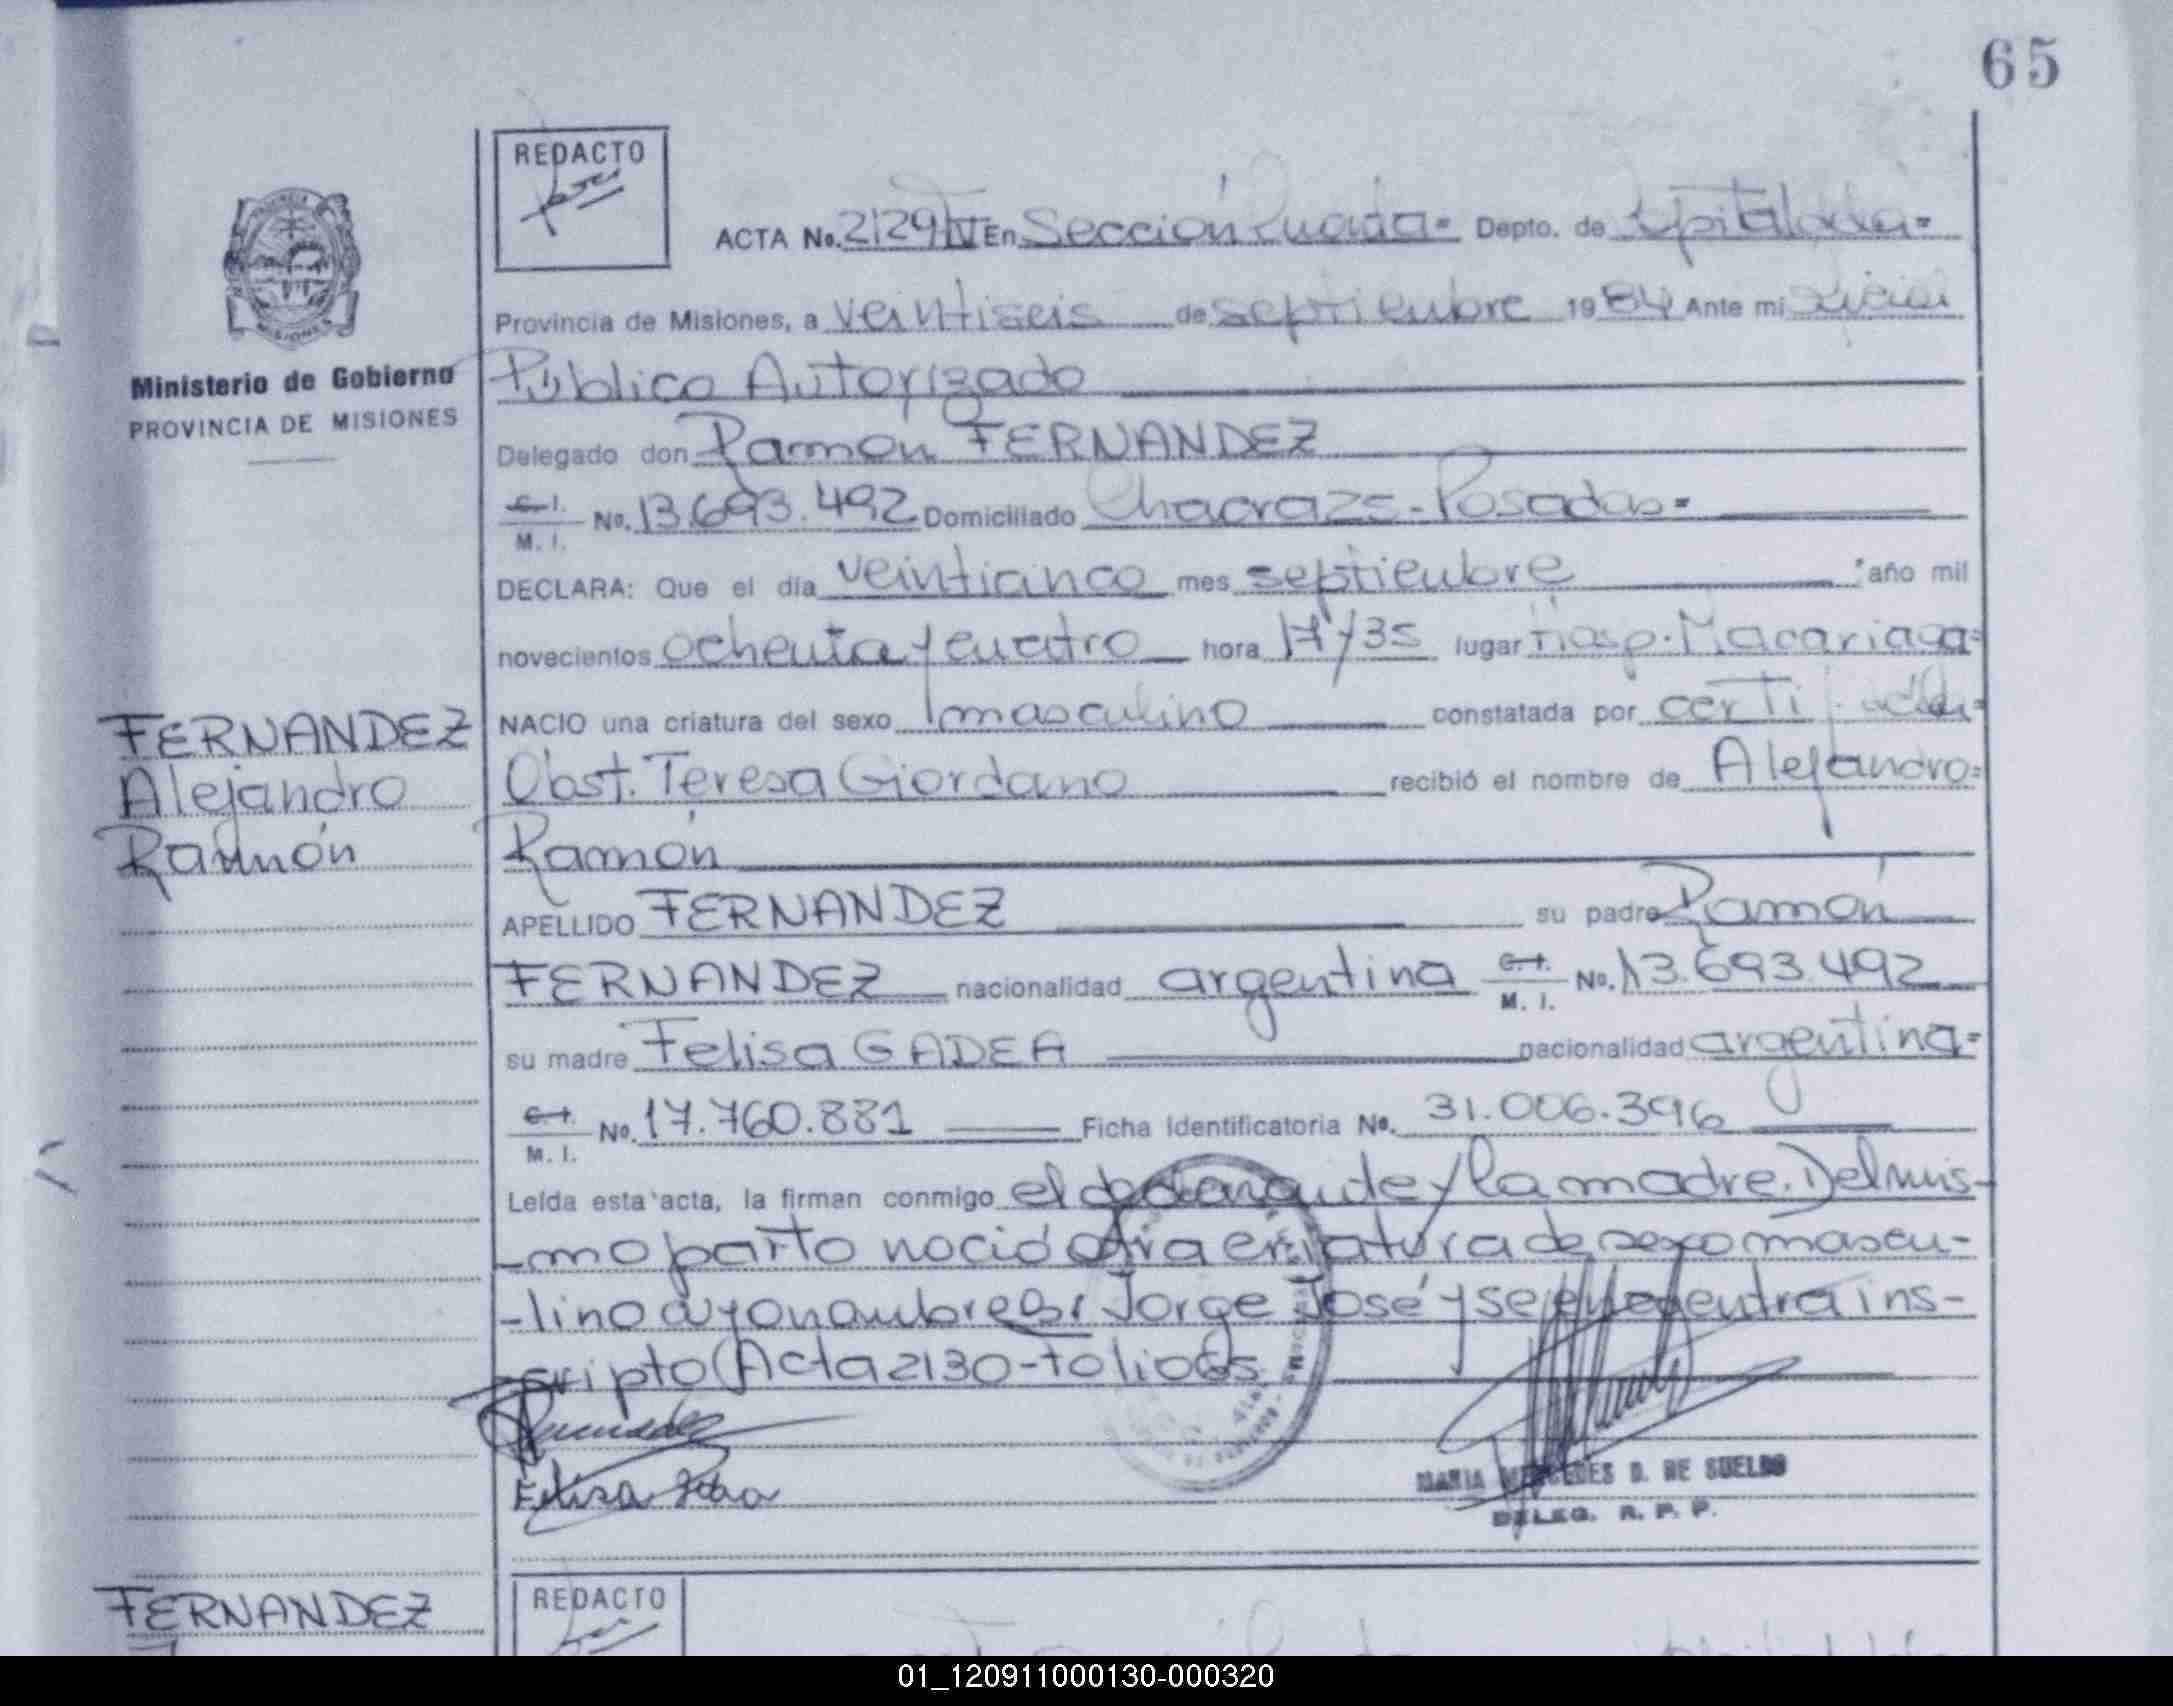 65
REDACTO
ACTA No. 2129 IV En Sección Cuarta = Depto. de Capital
Provincia de Misiones, a veintiseis de septiembre 1984 Ante mi Oficial
Público Autorizado
Ministerio de Gobierno
PROVINCIA DE MISIONES
Delegado don Ramón FERNANDEZ
C. I. M. I. No. 13.693.492 Domiciliado Chacra - Posadas =
DECLARA: Que el día veinticinco mes septiembre año mil
novecientos ochenta y cuatro hora 17 y 35 lugar Hosp.
NACIO una criatura del sexo masculino constatada por
Obst. Teresa Giordano recibió el nombre de Alejandro =
Ramón
FERNANDEZ
Alejandro
Ramón
APELLIDO FERNANDEZ su padre Ramón
FERNANDEZ nacionalidad argentina C. I. M. I. No. 13.693.492
su madre Felisa GADEA nacionalidad argentina =
C. I. M. I. No. 17.760.881 Ficha identificatoria No. 31.006.396
Leída esta acta, la firman conmigo el declarante y la madre. Del mis-
-mo parto nació otra criatura de sexo mascu-
-lino cuyo nombre es: Jorge José y se encuentra ins-
-cripto (Acta 2130 - folio 65
MARIA MERCEDES D. DE SUELDO
DELEG. R. P. P.
REDACTO
FERNANDEZ
01_120911000130-000320